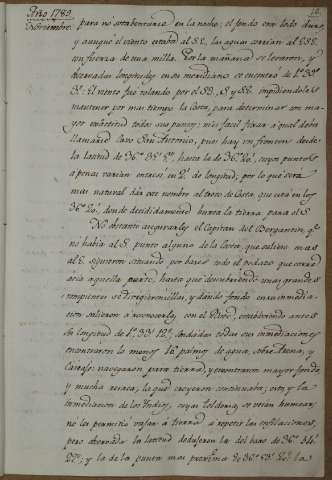 Año 1789
Noviembre
para no estar en la noche; el fondo era todo duro,
y aunque el viento estaba al SE, las aguas corrian al ESE
con fuerza de una milla. Por la mañana se levaron, y
longitudes en su meridiano se encontró de 1.º
3.º El viento fué rolando por el SE, S y SE impidiendoles
mantener por mas tiempo la Costa, para determinar con ma-
yor exâctitud todos sus puntos; mas facil fixar a qual deben
llamarse Cavo San Antonio, pues hay en frontera desde
la latitud de 36.º hasta la de 36.º 20', cuyos puntos
apenas varian entre sí, en 2' de longitud, por lo que sera
mas natural dar este nombre al trozo de Costa, que está en los
36.º 20', donde decididamente hurta la tierra para el S.
No obstante asegurarles el Capitan del Bergantin q.e
no habia al S. punto alguno de la Costa, que saliera mas
al E. siguieron situando por bases todo el pedazo que corrió
acia aquella parte, hasta que descubriendo unas grandes
rompientes se dirigieron á ellas, y dando fondo en su inmedia-
cion salieron á reconocerla, con el Bote, estableciendo antes
la longitud de 1.º 33' 12", sondadas todas sus inmediaciones
encontraron lo menos 16 palmos de agua, sobre Arena, y
Cascajo: navegaron para tierra, y encontraron mayor fondo
y mucha resaca, la que creyeron continuaba; esto y la
inmediacion de los Indios, cuyas tolderias se veian humear,
no les permitio vajar á tierra á repetir las
pero observada la latitud dedujeron la del baxo de 36.º
27", y la de la punta mas proxîma de 36.º la